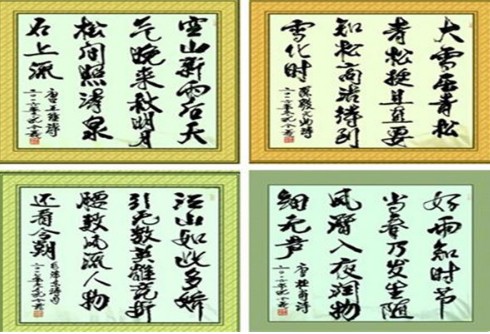 空山新雨后天
气晚来秋明月
松间照清泉
石上流
唐王维诗
大雪压青松
青松挺且直要
知松高洁待到
雪化时
江山如此多娇
引无数英雄竞折
腰数风流人物
还看今朝
好雨知时节
当春乃发生随
风潜入夜润物
细无声
唐杜甫诗